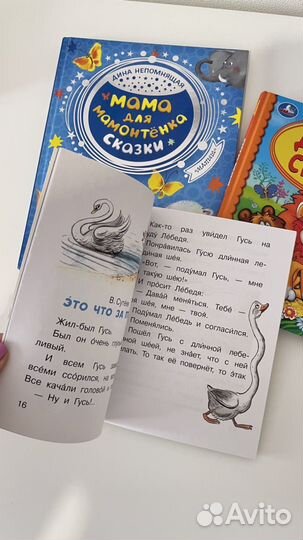 ДИНА НЕПОМНЯЩАЯ
МАМА
ДЛЯ
МАМОНТЁНКА
СКАЗКИ
В. Сутеев
ЭТО ЧТО ЗА
Жил-был Гусь.
Был он очень
ливый.
И всем Гусь
всеми ссорился, на
Все качали головой и
— Ну и Гусь!..
16
Как-то раз увидел Гусь на
Лебедя.
Понравилась Гусю длинная ле-
шея.
«Вот, — подумал Гусь, — мне
такую шею!»
И просит Лебедя:
— Давай меняться. Тебе —
шея, мне — твоя.
Подумал Лебедь и согласился.
Поменялись.
Пошёл Гусь с длинной лебе-
шеей, не знает, что с ней
То так её повернёт, то этак
Avito